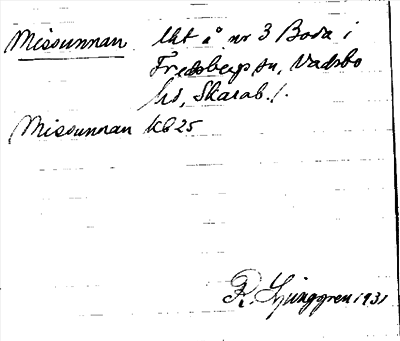 Missunnan lht å nr 3 Boda i
Fredsberg sn, Vadsbo
hd, Skarab. l.
Missunnan KB 25
R. Ljunggren 1931